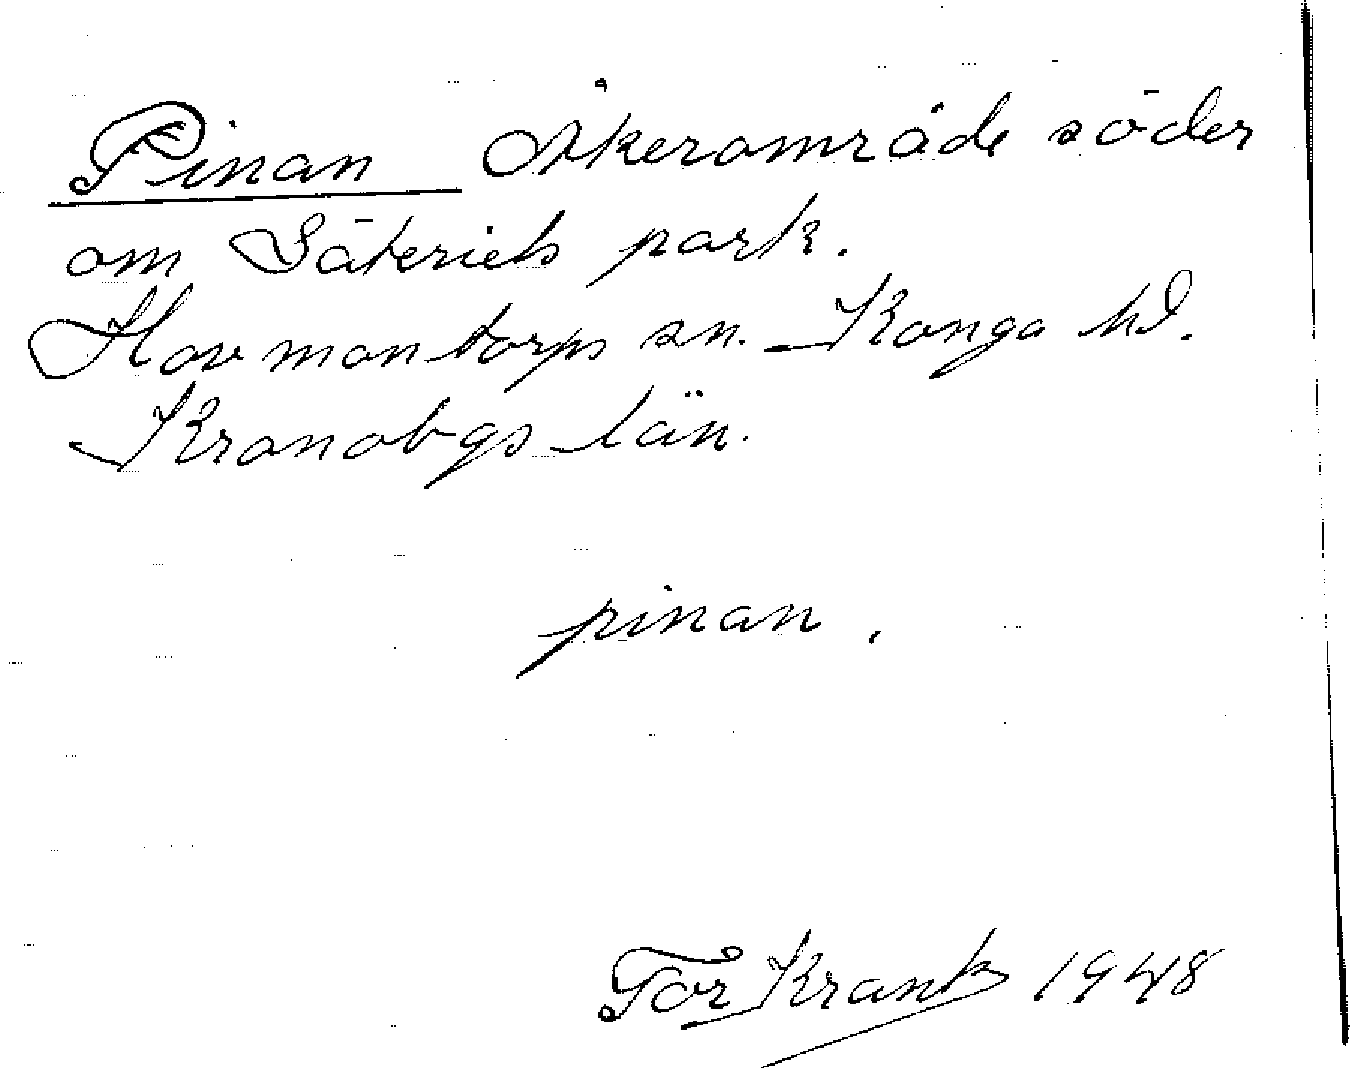 Pinan Åkerområde söder
om Säteriets park.
Hovmantorps sn. Konga hd.
Kronobgs län.
pinan.
Tor Krank 1948